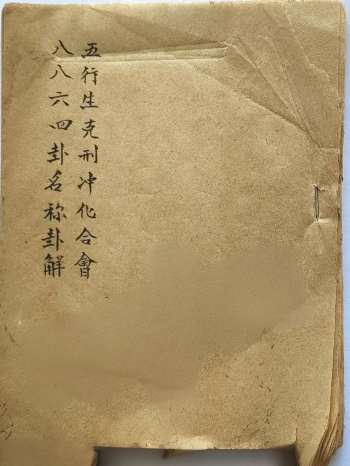 五行生克刑冲化合會
八八六四卦名称卦解